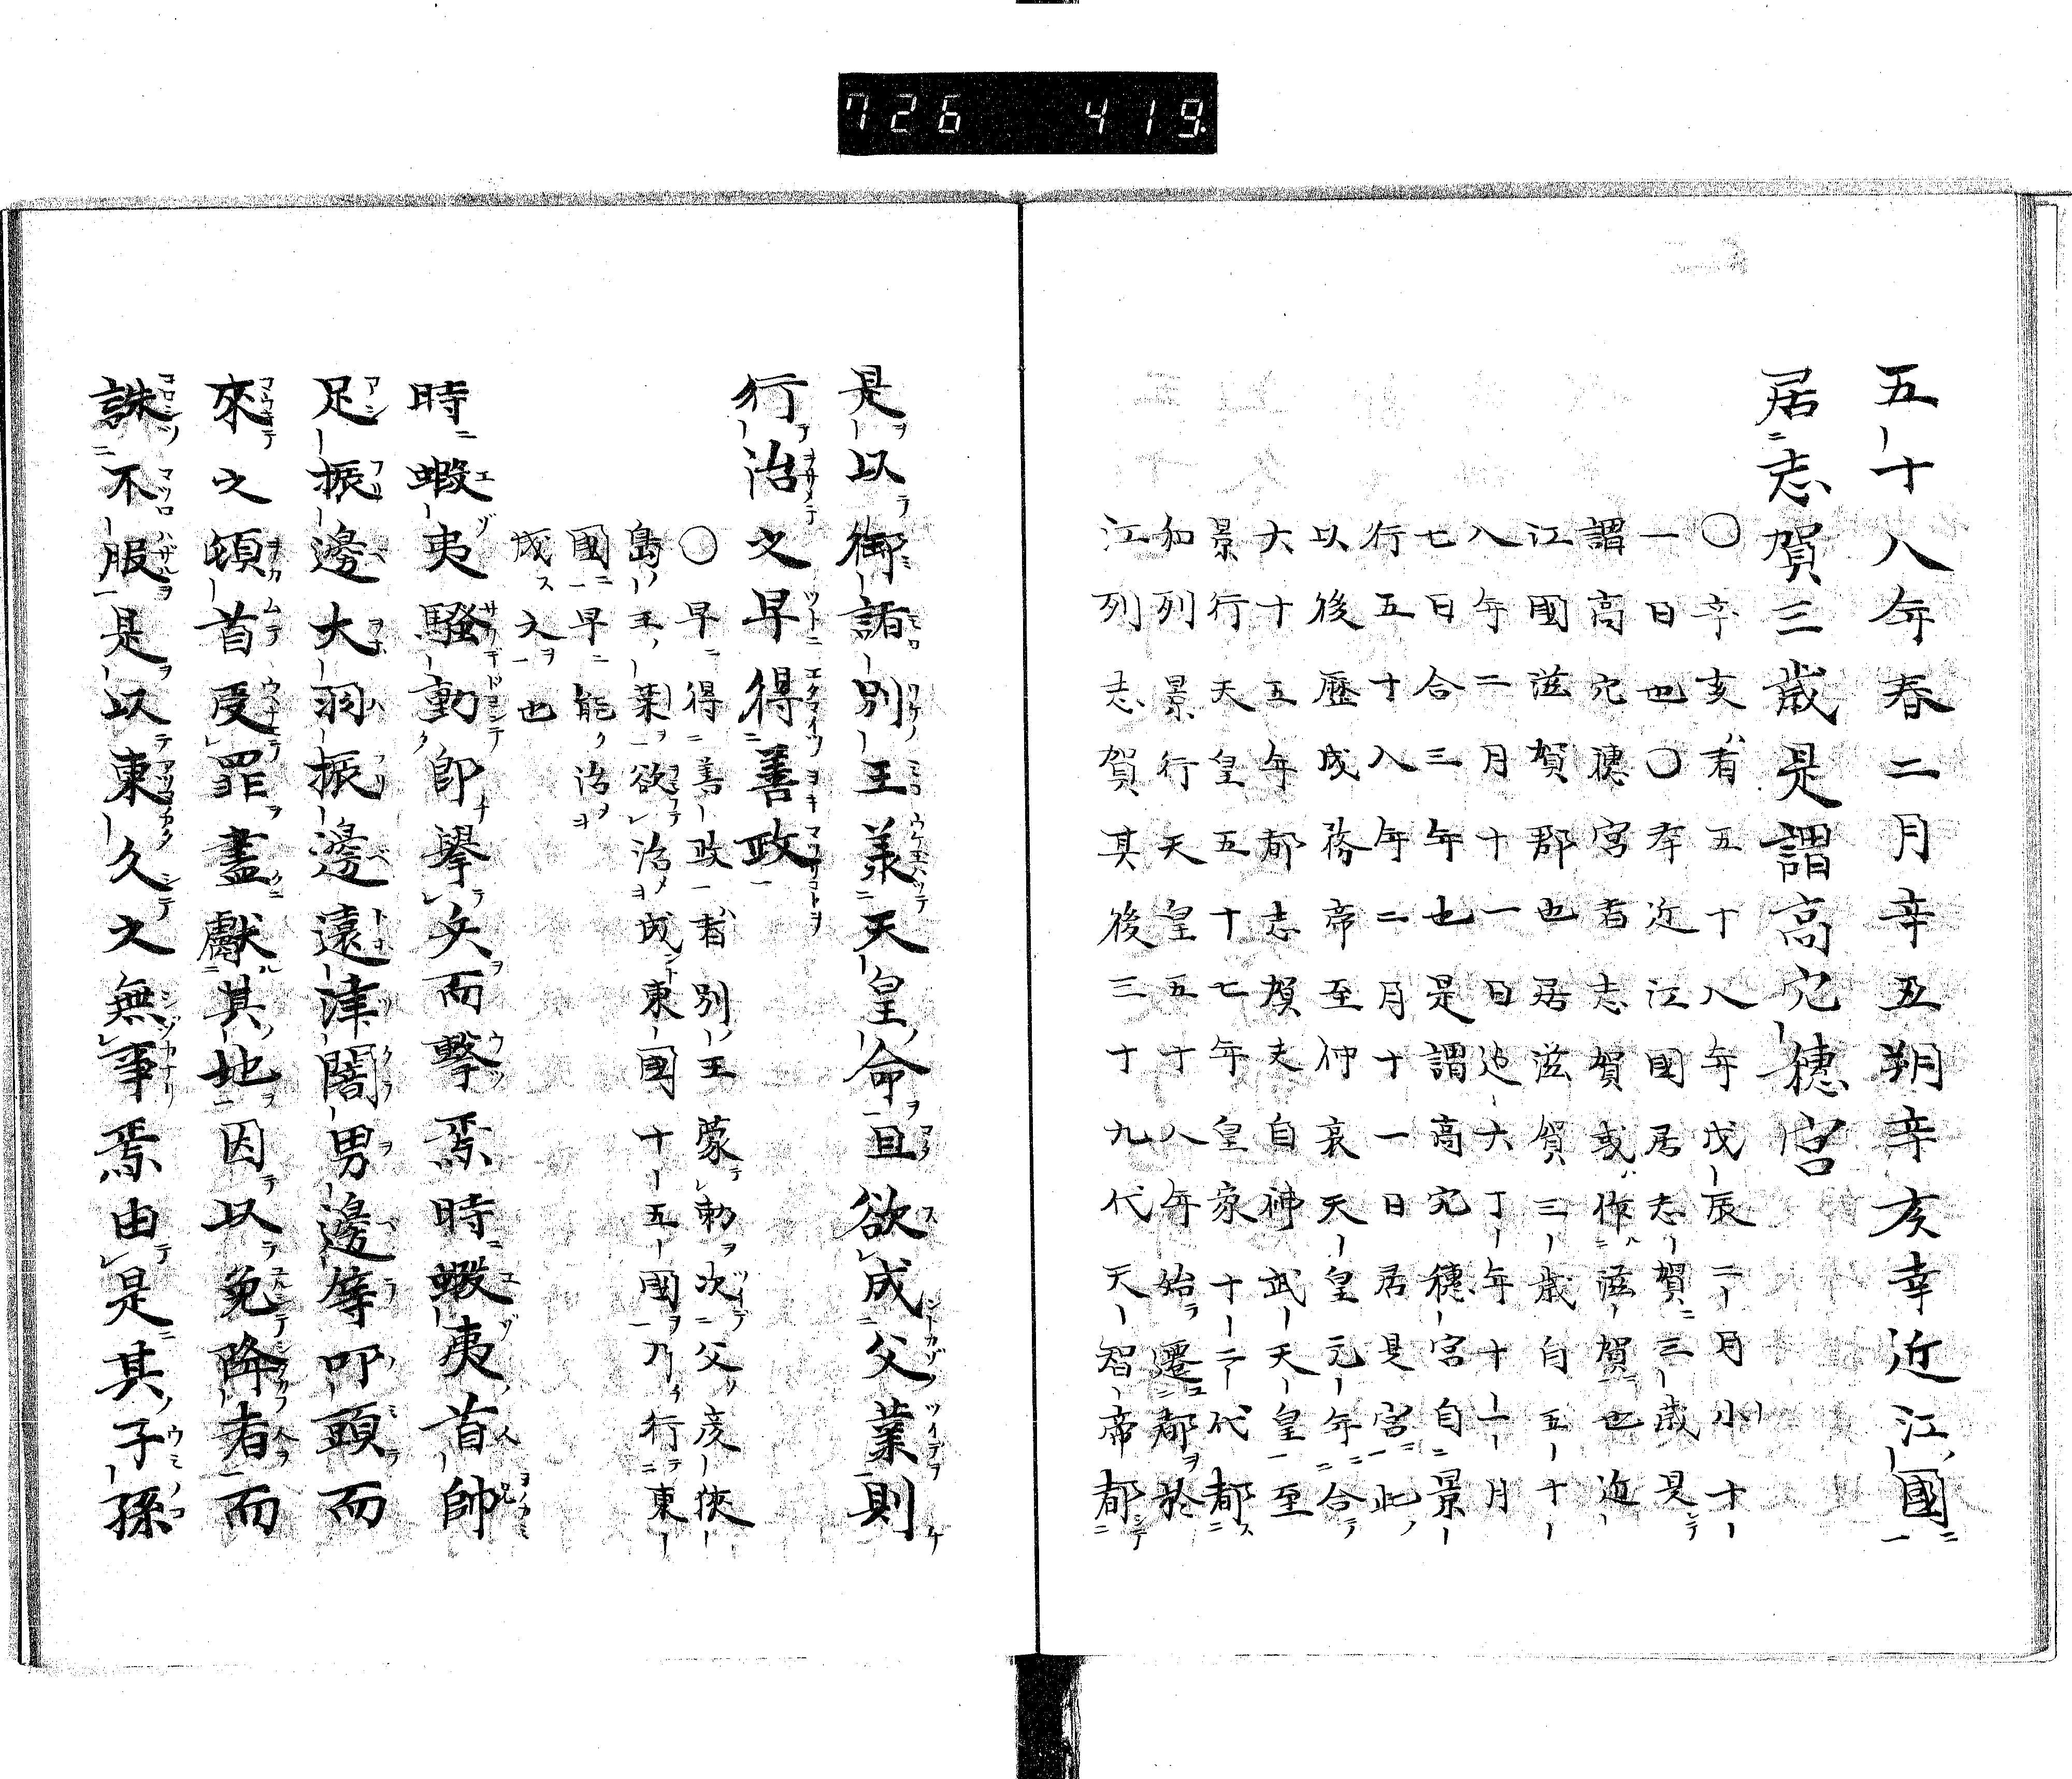 726 419.
五十八年春二月辛丑朔辛亥幸近江國
居志賀三歳是謂高穴穂宮
○辛亥者五十八年戊辰二月小十
一日也○幸近江國居志賀三歳是
謂高穴穂宮者志賀或作滋賀也近
江國滋賀郡也居滋賀三歳自五十
八年二月十一日迄六十年十一月
七日合三年也是謂高穴穂宮自景
行五十八年二月十一日居是宮此
以後歴成務帝至仲哀天皇元年合
六十五年都志賀夫自神武天皇至
景行天皇五十七年皇家十二代都
和列景行天皇五十八年始遷都於
江列志賀其後三十九代天智帝都
是以御諸別王羕天皇命且欲成父業則
行治之早得善政
○早得善政者別王蒙勅次父彦狹
島王業欲治成東國十五國乃行東
國早能治
成之也
時蝦夷騷動即擧兵而擊焉時蝦夷首帥
足振邊大羽振邊遠津闇男邊等叩頭而
來之頓首受罪盡獻其地因以免降者而
誅不服是以東久之無事焉由是其子孫